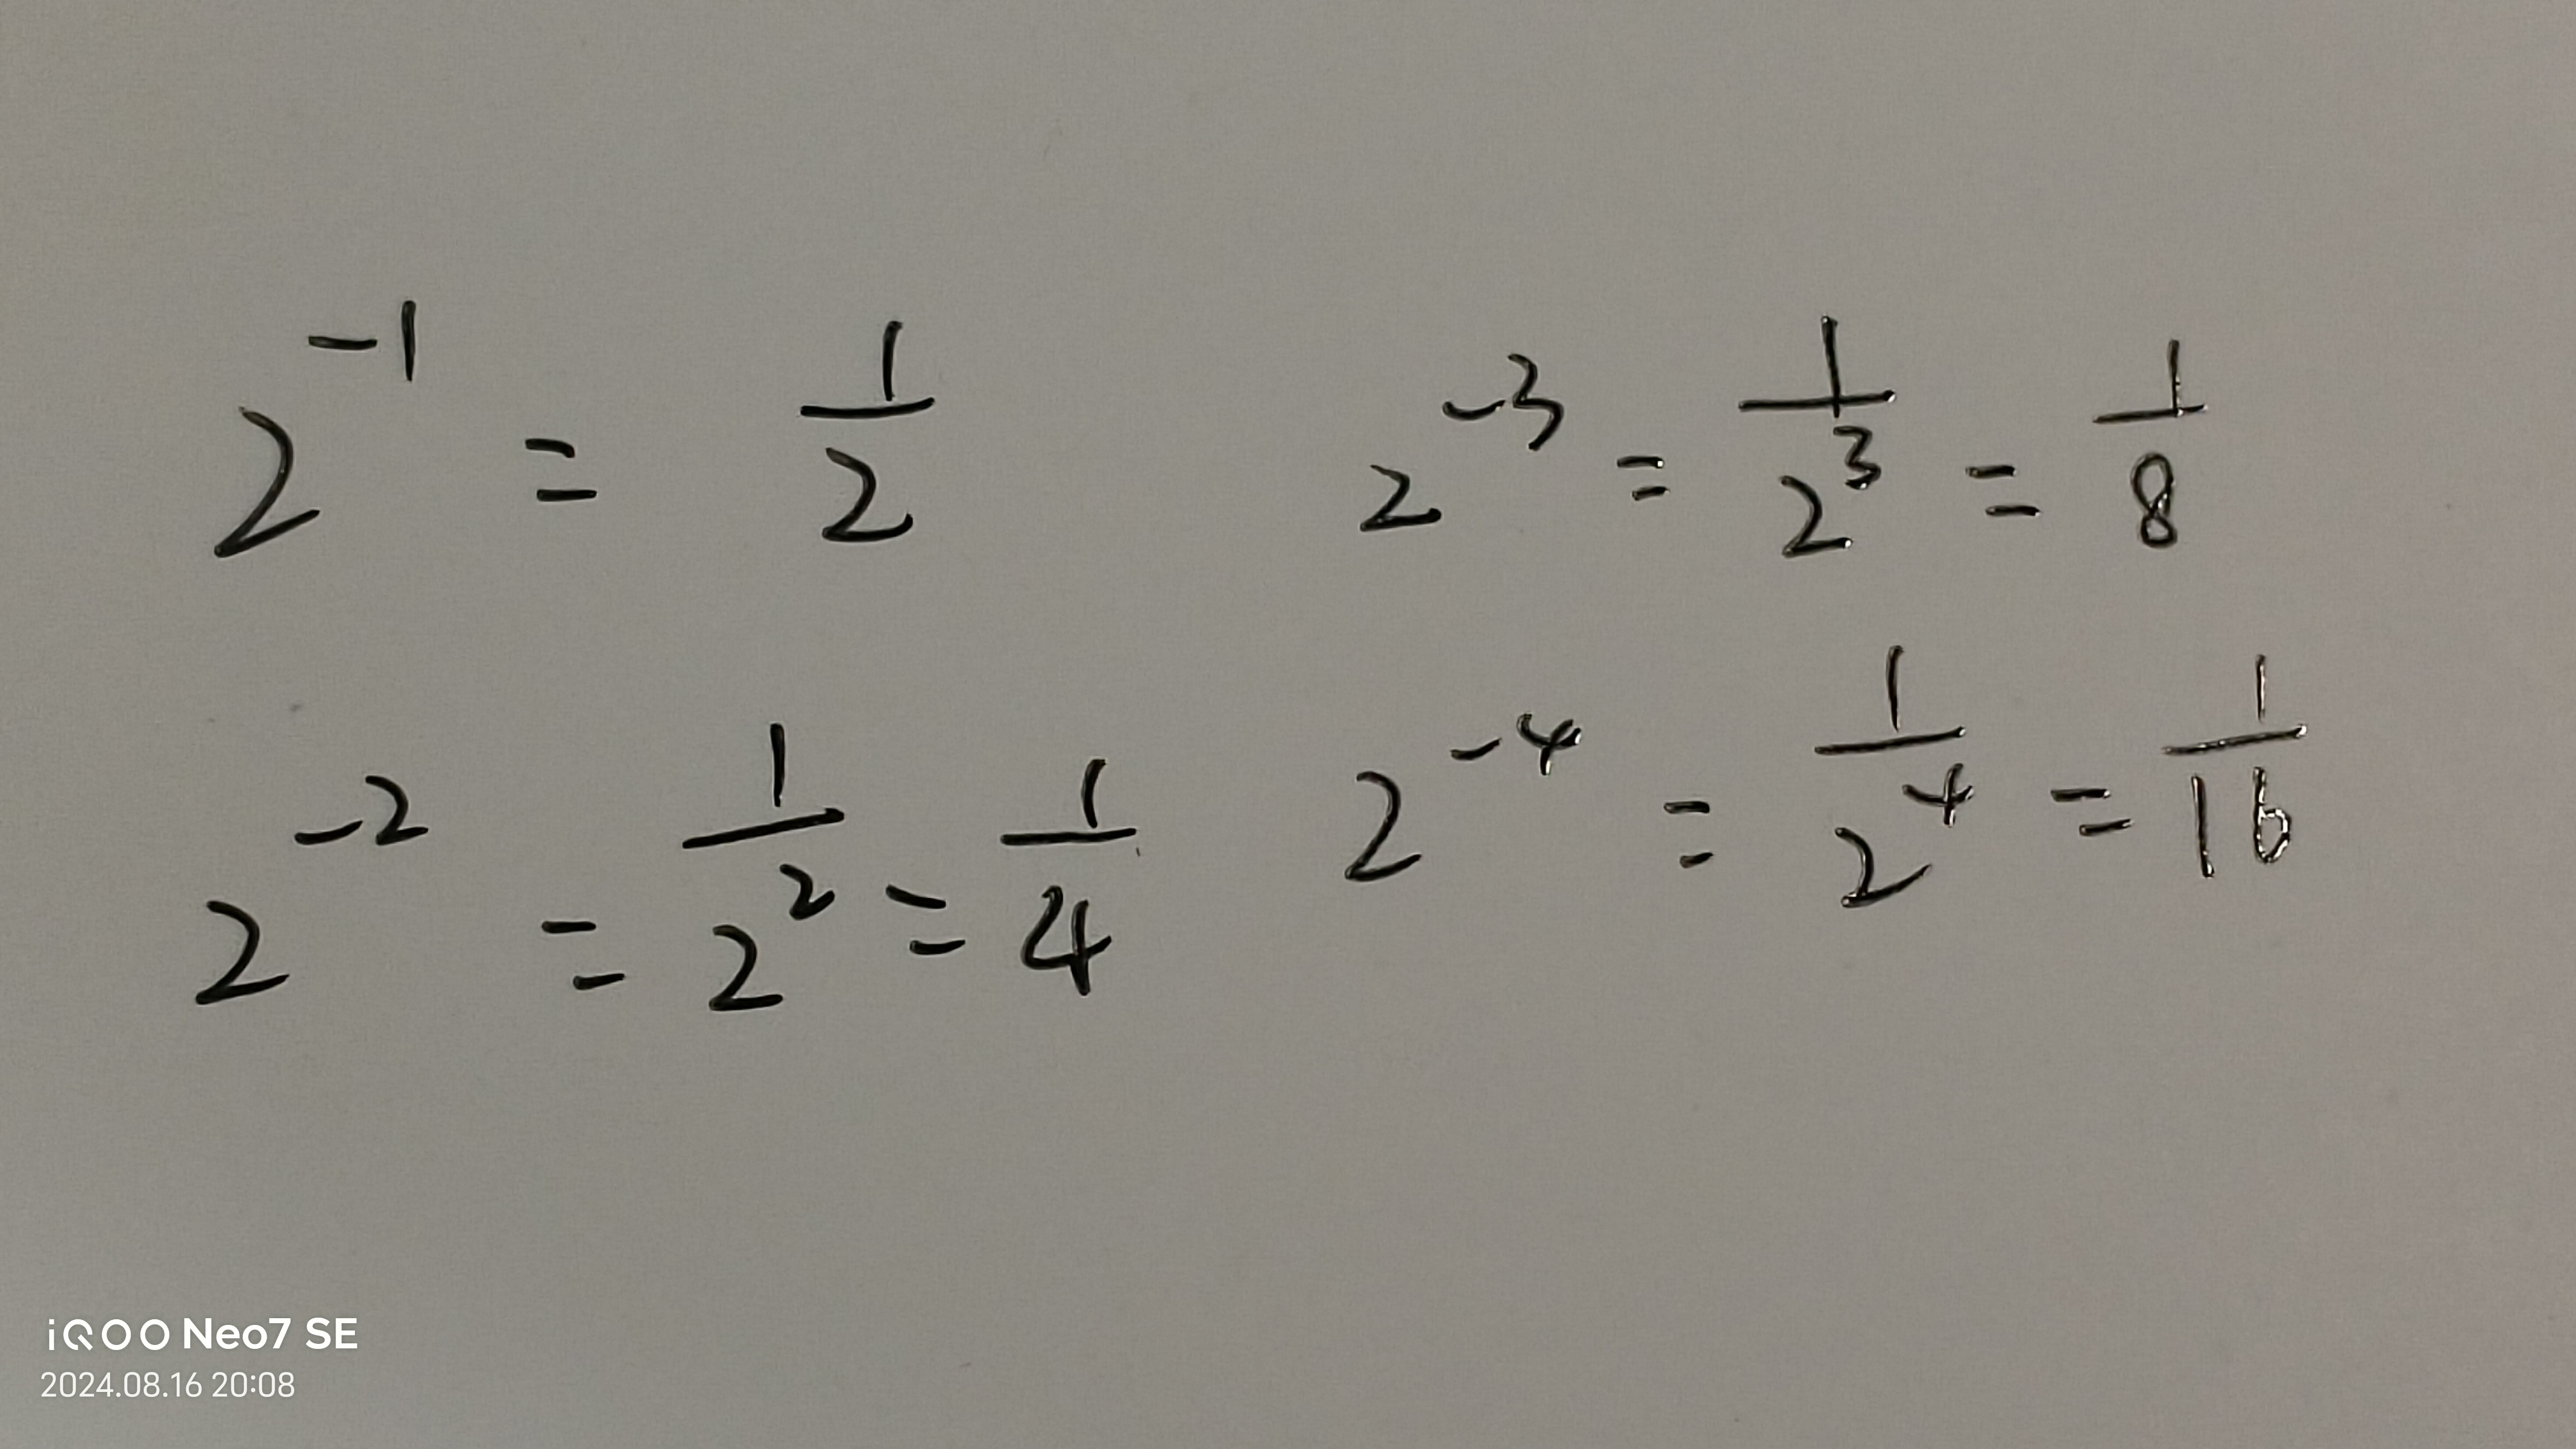 2⁻¹ = 1/2
2⁻² = 1/2² = 1/4
2⁻³ = 1/2³ = 1/8
2⁻⁴ = 1/2⁴ = 1/16
iQOO Neo7 SE
2024.08.16 20:08